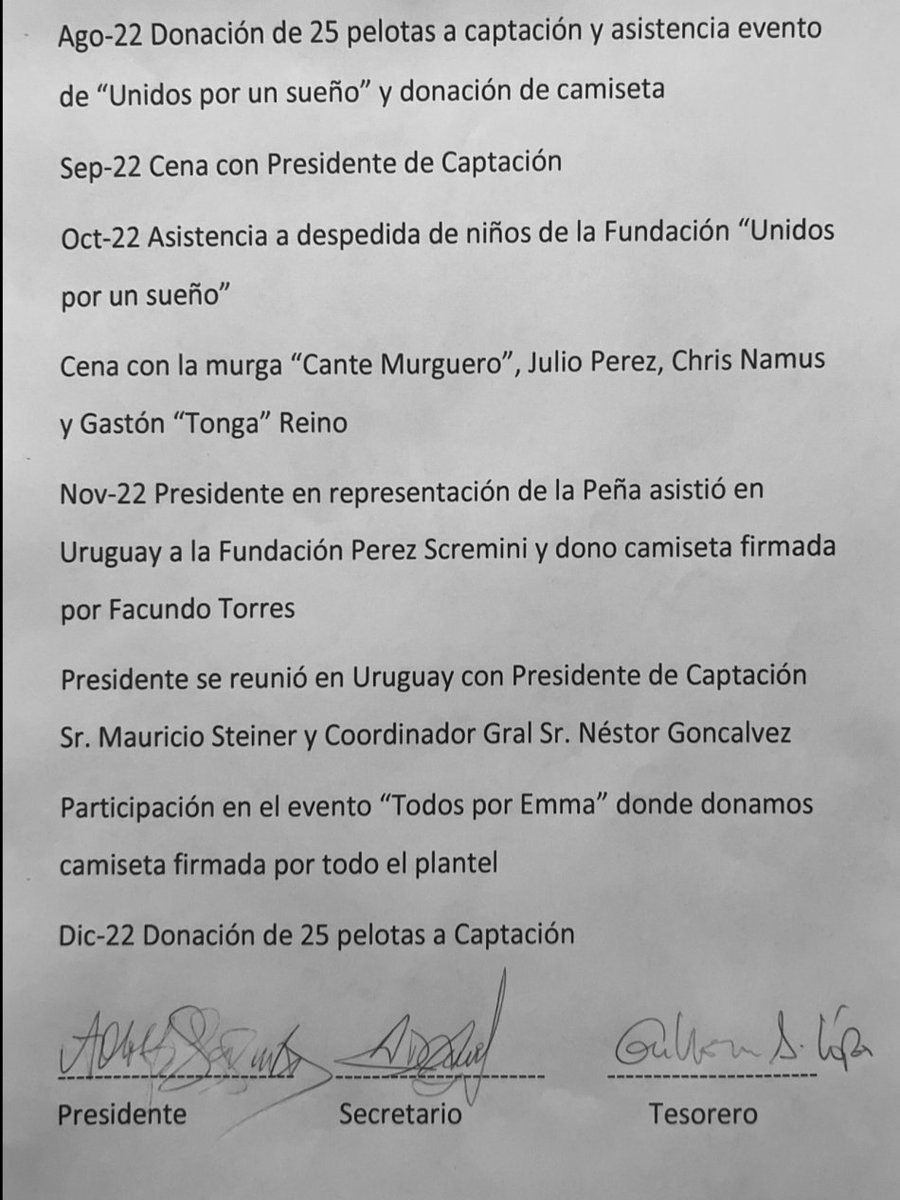 Ago-22 Donación de 25 pelotas a captación y asistencia evento
de “Unidos por un sueño” y donación de camiseta
Sep-22 Cena con Presidente de Captación
Oct-22 Asistencia a despedida de niños de la Fundación “Unidos
por un sueño”
Cena con la murga “Cante Murguero”, Julio Perez, Chris Namus
y Gastón “Tonga” Reino
Nov-22 Presidente en representación de la Peña asistió en
Uruguay a la Fundación Perez Scremini y dono camiseta firmada
por Facundo Torres
Presidente se reunió en Uruguay con Presidente de Captación
Sr. Mauricio Steiner y Coordinador Gral Sr. Néstor Goncalvez
Participación en el evento “Todos por Emma” donde donamos
camiseta firmada por todo el plantel
Dic-22 Donación de 25 pelotas a Captación
Presidente Secretario Tesorero